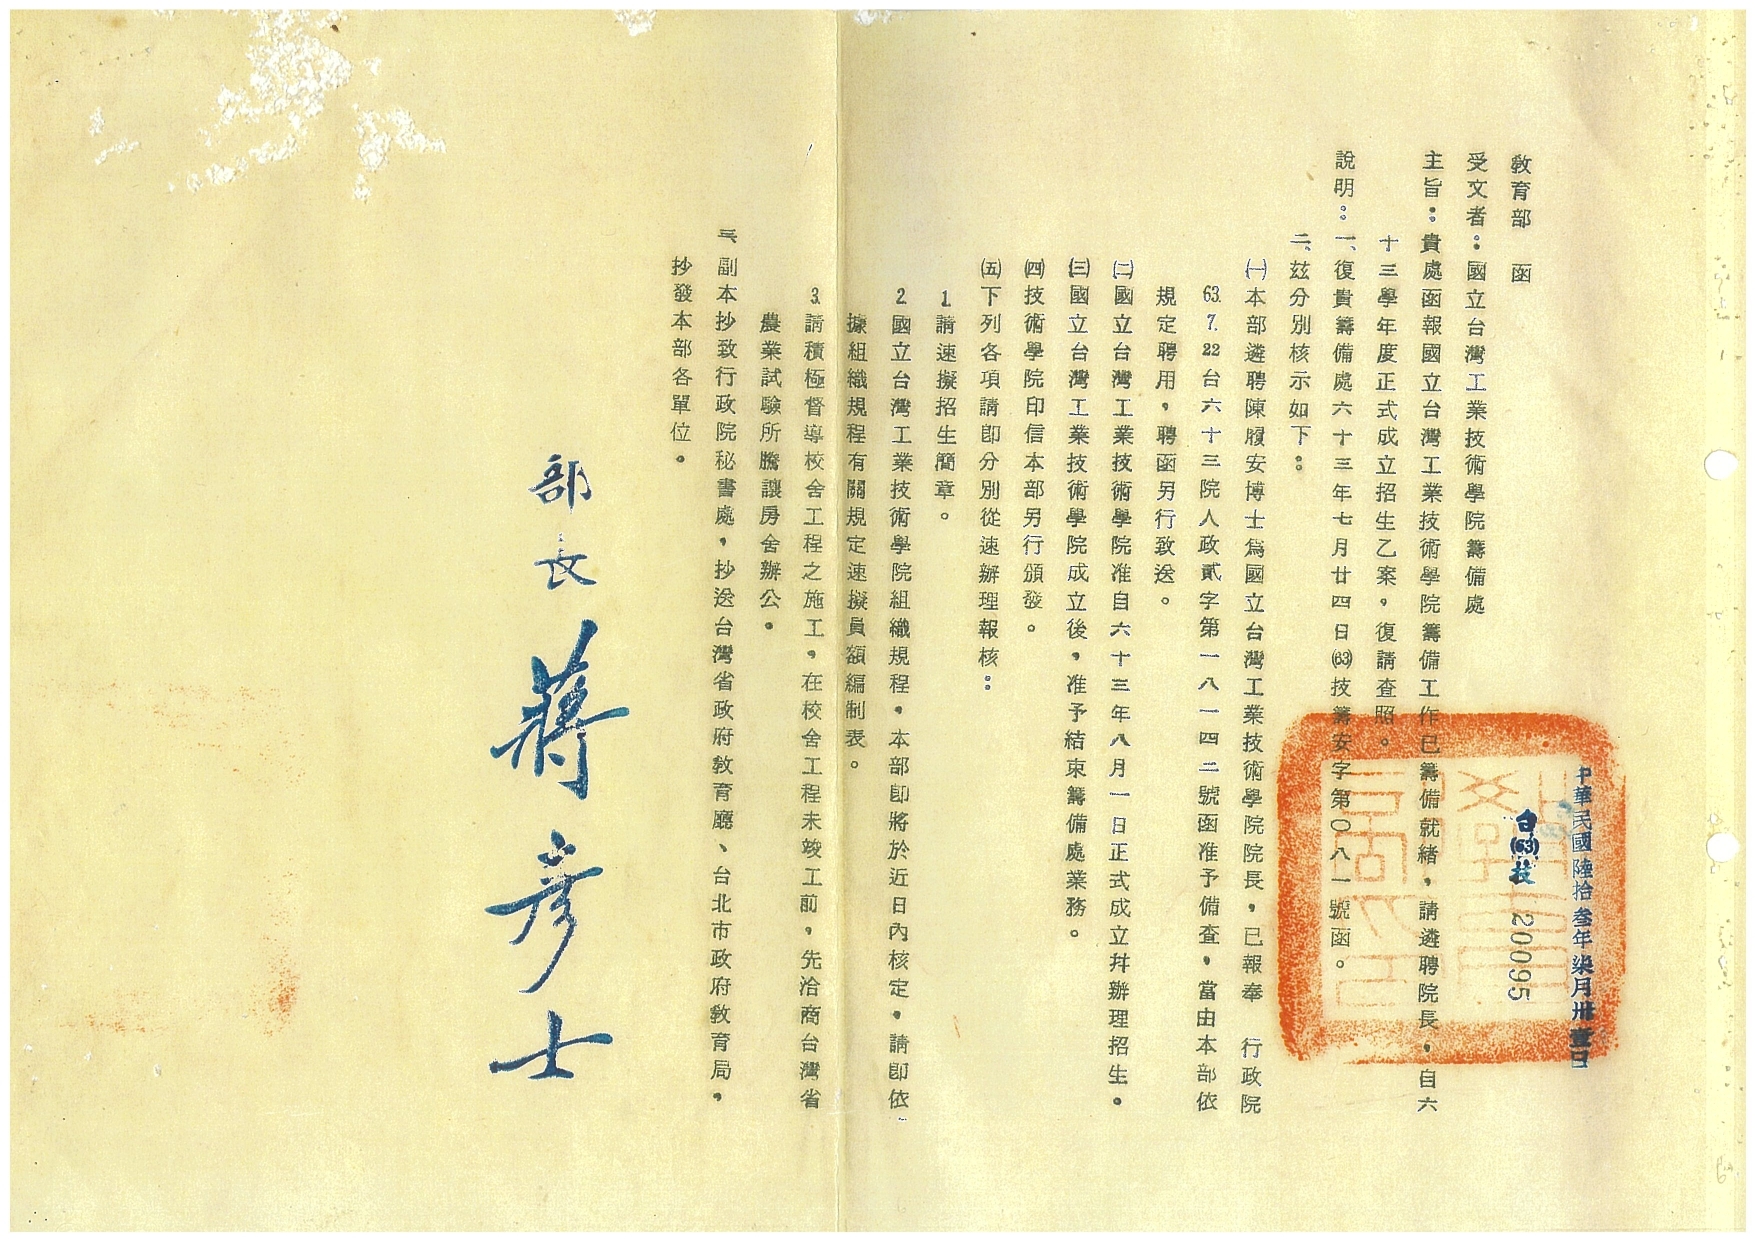 教育部　函
中華民國陸拾叁年柒月卅壹日
台(63)技 20095
受文者：國立台灣工業技術學院籌備處
主旨：貴處函報國立台灣工業技術學院籌備工作已籌備就緒，請遴聘院長，自六
十三學年度正式成立招生乙案，復請查照。
說明：一、復貴籌備處六十三年七月廿四日(63)技籌安字第〇八一號函。
二、玆分別核示如下：
㈠本部遴聘陳履安博士爲國立台灣工業技術學院院長，已報奉　行政院
63.7.22台六十三院人政貳字第一八一四二號函准予備查，當由本部依
規定聘用，聘函另行致送。
㈡國立台灣工業技術學院准自六十三年八月一日正式成立幷辦理招生。
㈢國立台灣工業技術學院成立後，准予結束籌備處業務。
㈣技術學院印信本部另行頒發。
㈤下列各項請卽分別從速辦理報核：
1.請速擬招生簡章。
2.國立台灣工業技術學院組織規程，本部卽將於近日內核定，請卽依
據組織規程有關規定速擬員額編制表。
3.請積極督導校舍工程之施工，在校舍工程未竣工前，先洽商台灣省
農業試驗所騰讓房舍辦公。
三、副本抄致行政院秘書處，抄送台灣省政府教育廳、台北市政府教育局，
抄發本部各單位。
部長 蔣彥士